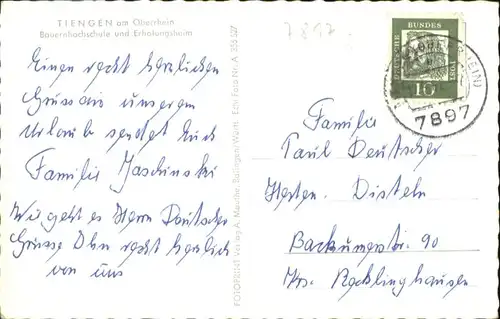 TIENGEN am Oberrhein
Bauernhochschule und Erholungsheim
7897
Einen recht herzlichen
Gruss aus unserem
Urlaub sendet Euch
Familie Jaschinski
Wie geht es Herrn Deutscher
Grüsse Ihn recht herzlich
von uns
FOTOPRINT Verlag A. Echt Foto Nr. A 335 527
DEUTSCHE
BUNDES
POST
10
(RHEIN)
7897
Familie
Paul Deutscher
Herten. Disteln
Backumerstr. 90
Krs. Recklinghausen